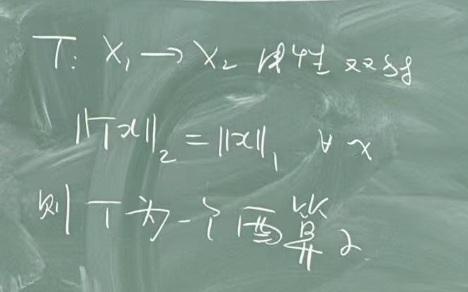 T: X₁ → X₂ 线性双射
‖Tx‖₂ = ‖x‖₁ ∀ x
则 T 为一个酉算子